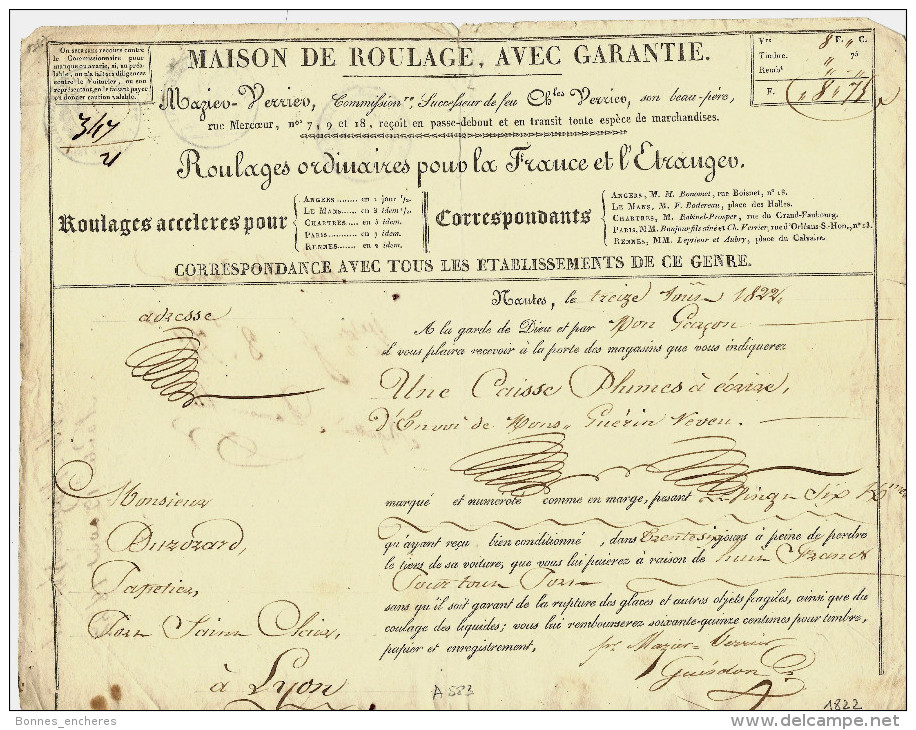 On sera sans recours contre
le Commissionnaire pour
manque ou avarie, si, au préa-
lable, on n'a fait ses diligences
contre le Voiturier, ou son
représentant en le faisant payer
ou donner caution valable.
347
21
MAISON DE ROULAGE, AVEC GARANTIE.
Vre 8 F. " C.
Timbre. " 75
Rembt " "
F. 8 " 75
Mazier-Verrier, Commissionre, Successeur de feu Chles Verrier, son beau-père,
rue Mercœur, nos 7, 9 et 18, reçoit en passe-debout et en transit toute espèce de marchandises.
Roulages ordinaires pour la France et l'Etranger.
Roulages accélérés pour
ANGERS....... en 1 jour 1/2.
LE MANS.... en 3 idem. 1/2.
CHARTRES.... en 5 idem.
PARIS........ en 7 idem.
RENNES...... en 2 idem.
Correspondants
ANGERS, M. H. Bonomet, rue Boisnet, n° 18.
LE MANS, M. F. Bodereau, place des Halles.
CHARTRES, M. Babinel-Prosper, rue du Grand-Faubourg.
PARIS, MM. Bonjour fils aîné et Ch. Verrier, rue d'Orléans S.-Hon., n° 13.
RENNES, MM. Leprieur et Aubry, place du Calvaire.
CORRESPONDANCE AVEC TOUS LES ÉTABLISSEMENTS DE CE GENRE.
Nantes, le treize Aoûst 1822
adresse
A la garde de Dieu et par Mon Garçon
il vous plaira recevoir à la porte des magasins que vous indiquerez
Une Caisse Plumes à écrire,
D'Envoi de Mons. Guérin Neveu.
Monsieur
marqué et numéroté comme en marge, pesant Vingt Six
Duzozard,
qu'ayant reçu bien conditionné, dans trente six jours à peine de perdre
le tiers de sa voiture, que vous lui paierez à raison de huit Francs
Papetier,
Pour tout Port
sans qu'il soit garant de la rupture des glaces et autres objets fragiles, ainsi que du
Port Saint Clair,
coulage des liquides; vous lui rembourserez soixante-quinze centimes pour timbre,
papier et enregistrement.
pr Mazier-Verrier
Guesdon
à Lyon
A 883
1822
Bonnes_encheres
www.delcampe.net